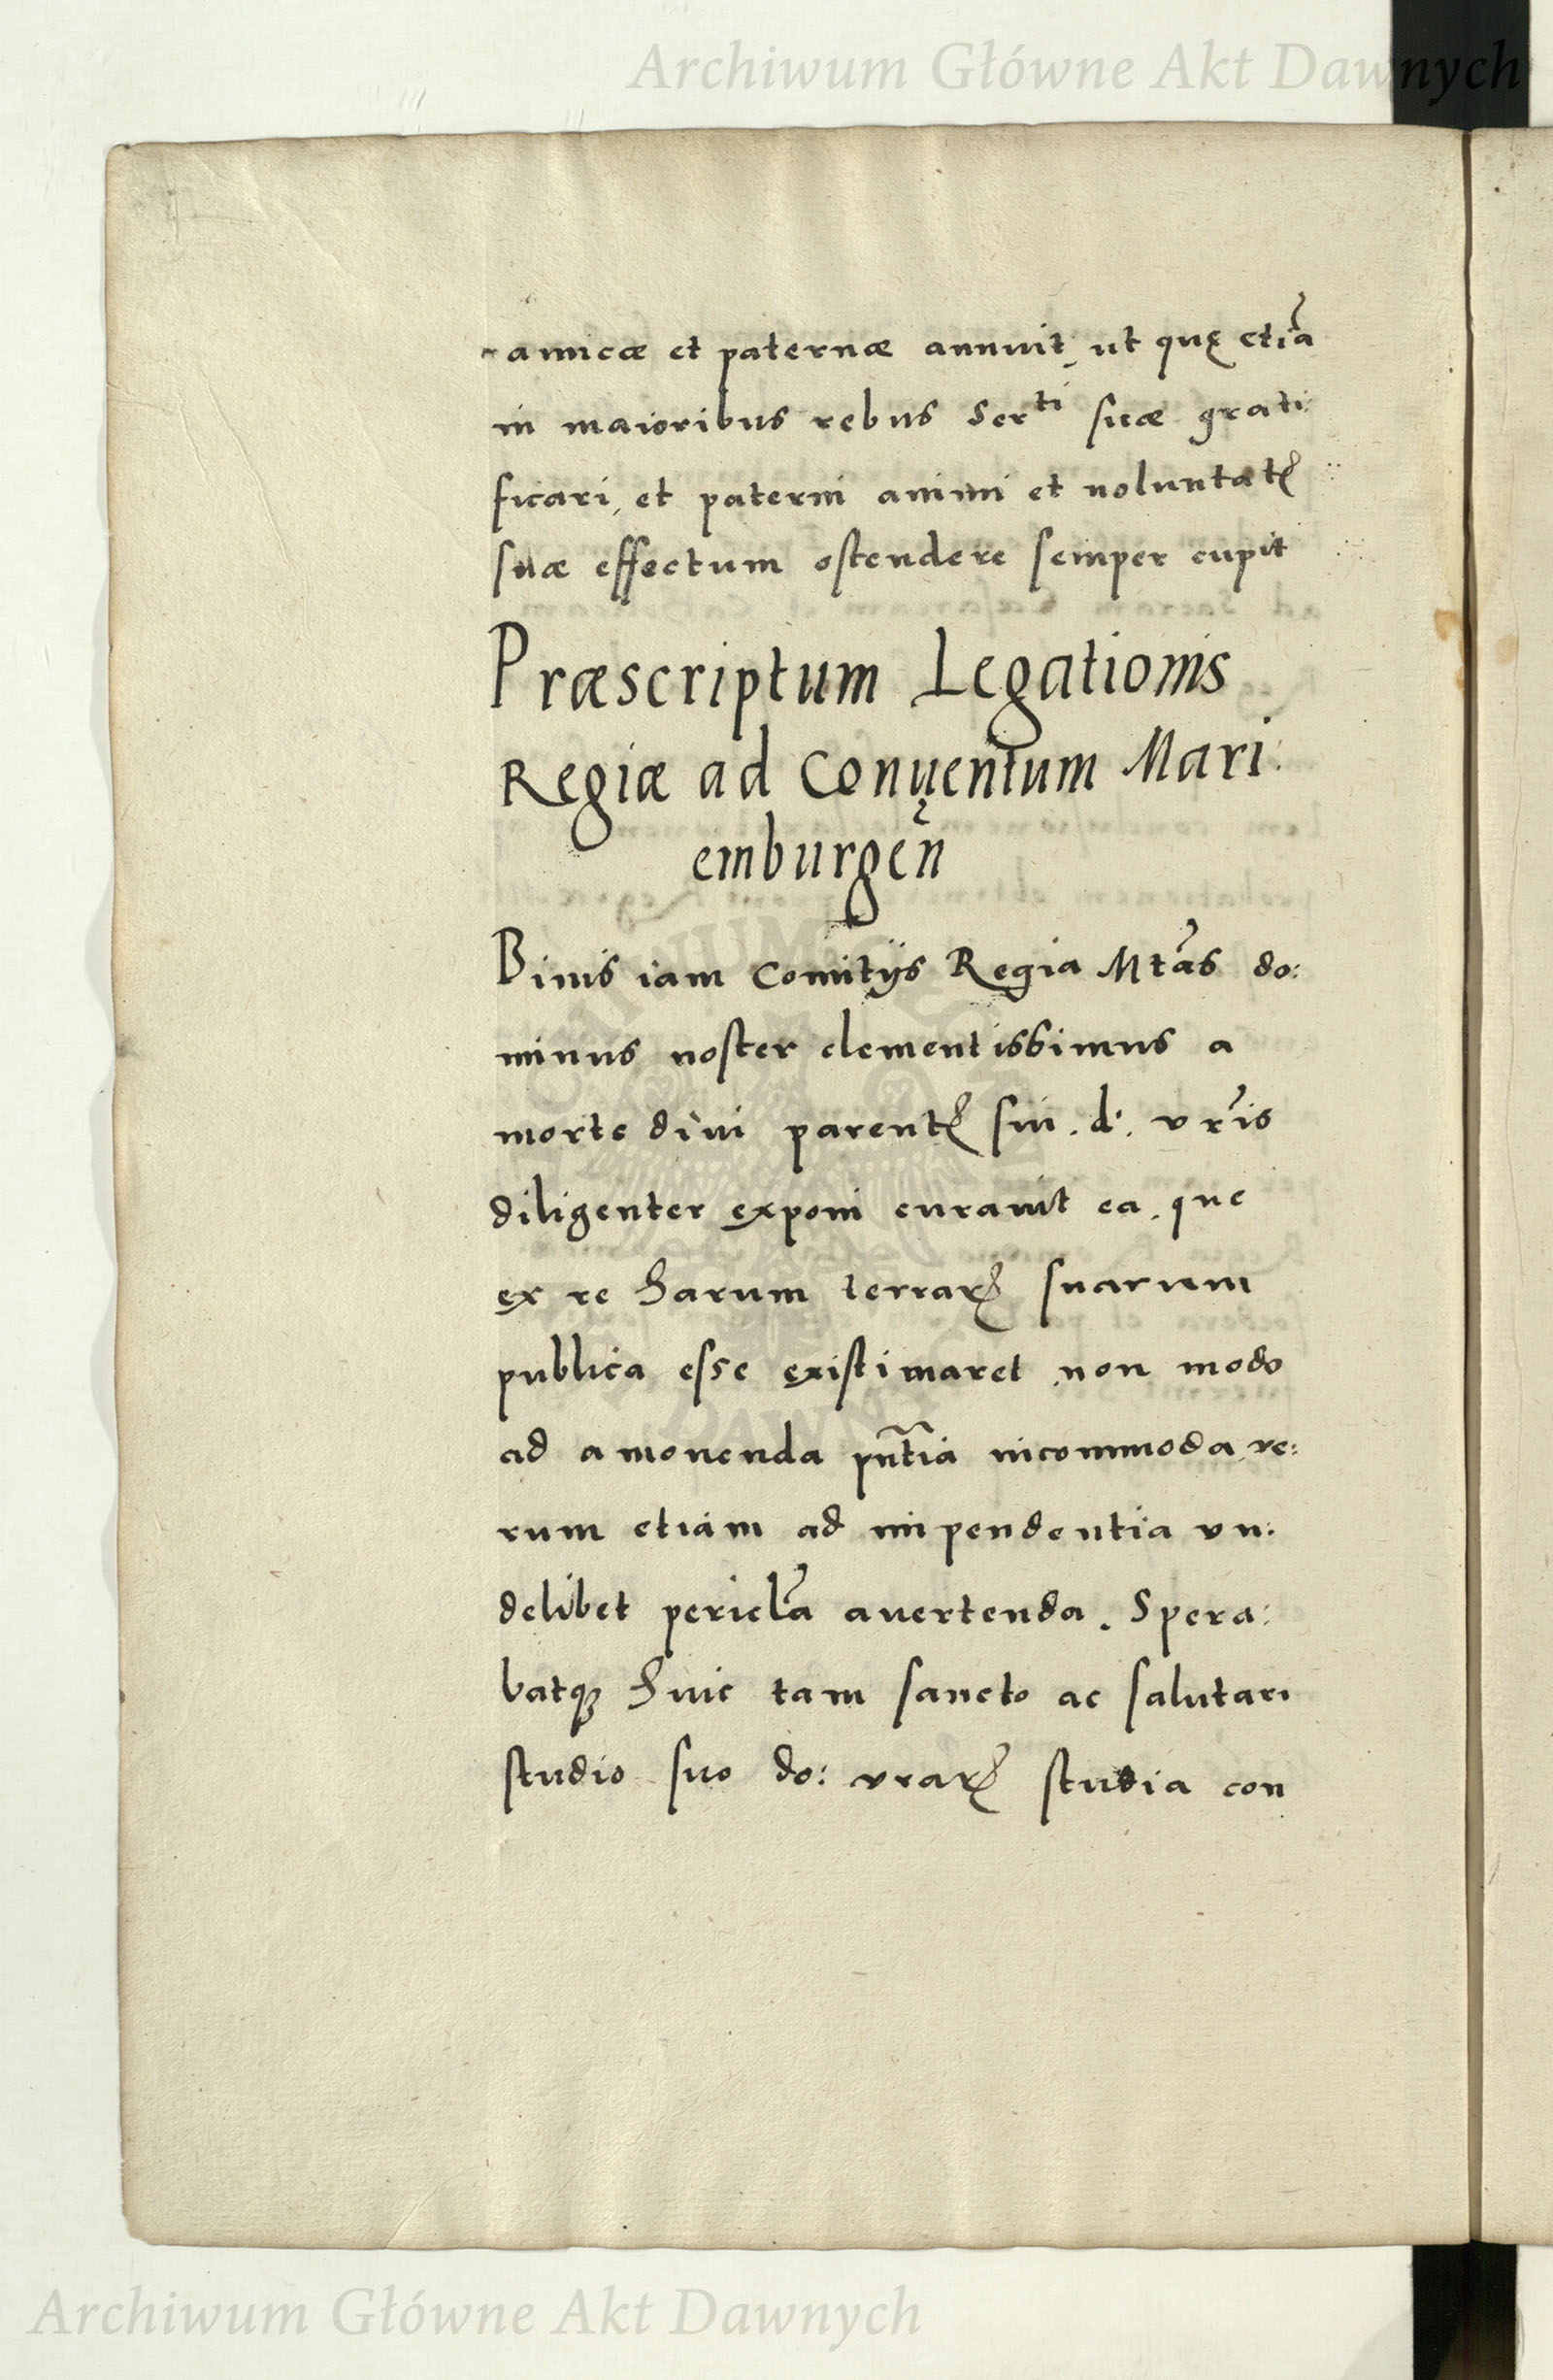 Archiwum Główne Akt Dawnych
amicæ et paternæ annuit, ut quę etia͂
in maioribus rebus Serti suæ grati:
ficari, et paterni animi et uoluntatꝭ
suæ effectum ostendere semper cupit
Præscriptum Legationis
Regiæ ad Conuentum Mari:
emburgen̄
Binis iam Comitijs Regia Mta͂s do:
minus noster clementissimus a
morte diui parentꝭ sui. d'. vr͂is
diligenter exponi curauit ea, que
ex re harum terrarꝭ suarum
publica esse existimaret non modo
ad amouenda pn͂tia incommoda, ve:
rum etiam ad impendentia vn:
delibet pericl͂a auertenda. Spera:
batqꝫ huic tam sancto ac salutari
studio suo do: vrarꝭ studia con
Archiwum Główne Akt Dawnych